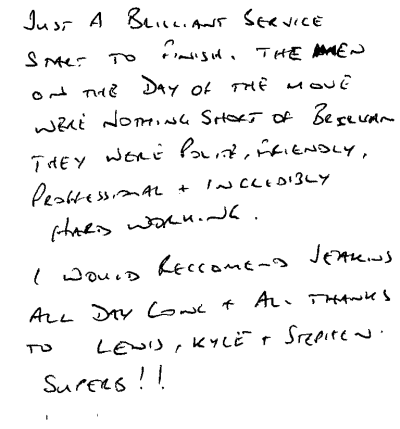 JUST A BRILLIANT SERVICE
START TO FINISH. THE MEN
ON THE DAY OF THE MOVE
WERE NOTHING SHORT OF BRILLIAN
THEY WERE POLITE, FRIENDLY,
PROFESSIONAL + INCREDIBLY
HARD WORKING.
I WOULD RECCOMEND JENKINS
ALL DAY LONG + ALL THANKS
TO LEWIS, KYLE + STEPHEN.
SUPERB!!